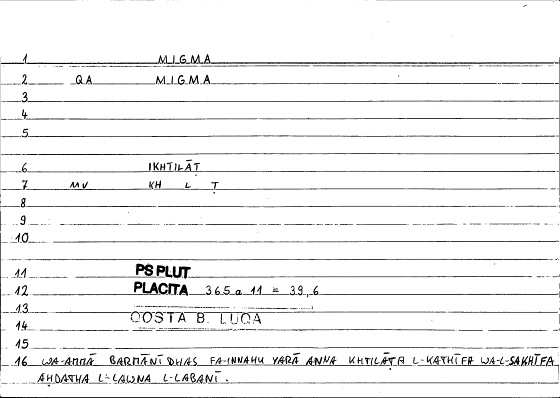 1 MIGMA
2 QA MIGMA
3
4
5
6 IKHTILĀṬ
7 MV KH L Ṭ
8
9
10
11 PS PLUT
12 PLACITA 365a 11 = 39,6
13
14 QOSTA B. LUQA
15
16 WA-AMMĀ BARMĀNĪDHAS FA-INNAHU YARĀ ANNA KHTILĀṬA L-KATHĪFA WA-L-SAKHĪFA
AḤDATHA L-LAWNA L-LABANĪ.